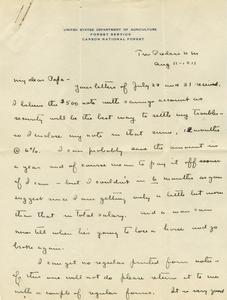 UNITED STATES DEPARTMENT OF AGRICULTURE
FOREST SERVICE
CARSON NATIONAL FOREST
Tres Piedras N M
Aug 11-1911
My dear Papa -
Your letter of July 28 and 31 received.
I believe the $500 note with savings account as
security will be the best way to settle my troubles
so I enclose my note in that sum, 12 months
@ 6%. I can probably save the amount in
a year and of course mean to pay it off sooner
if I can - but I couldn't in 6 months as you
suggest since I am getting only a little bit more
than that in total salary. And a man can
never tell when he's going to lose a horse and go
broke again.
I can get no regular printed form note -
if this one will not do please return it to me
with a couple of regular forms. It is very good